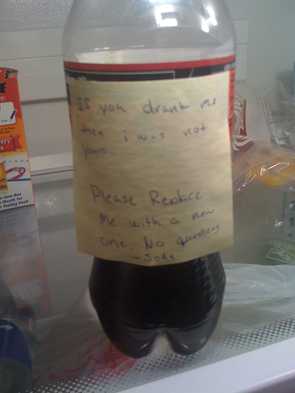 If you drank me
then i was not
yours.
Please Replace
me with a new
one. No questions
- Soda